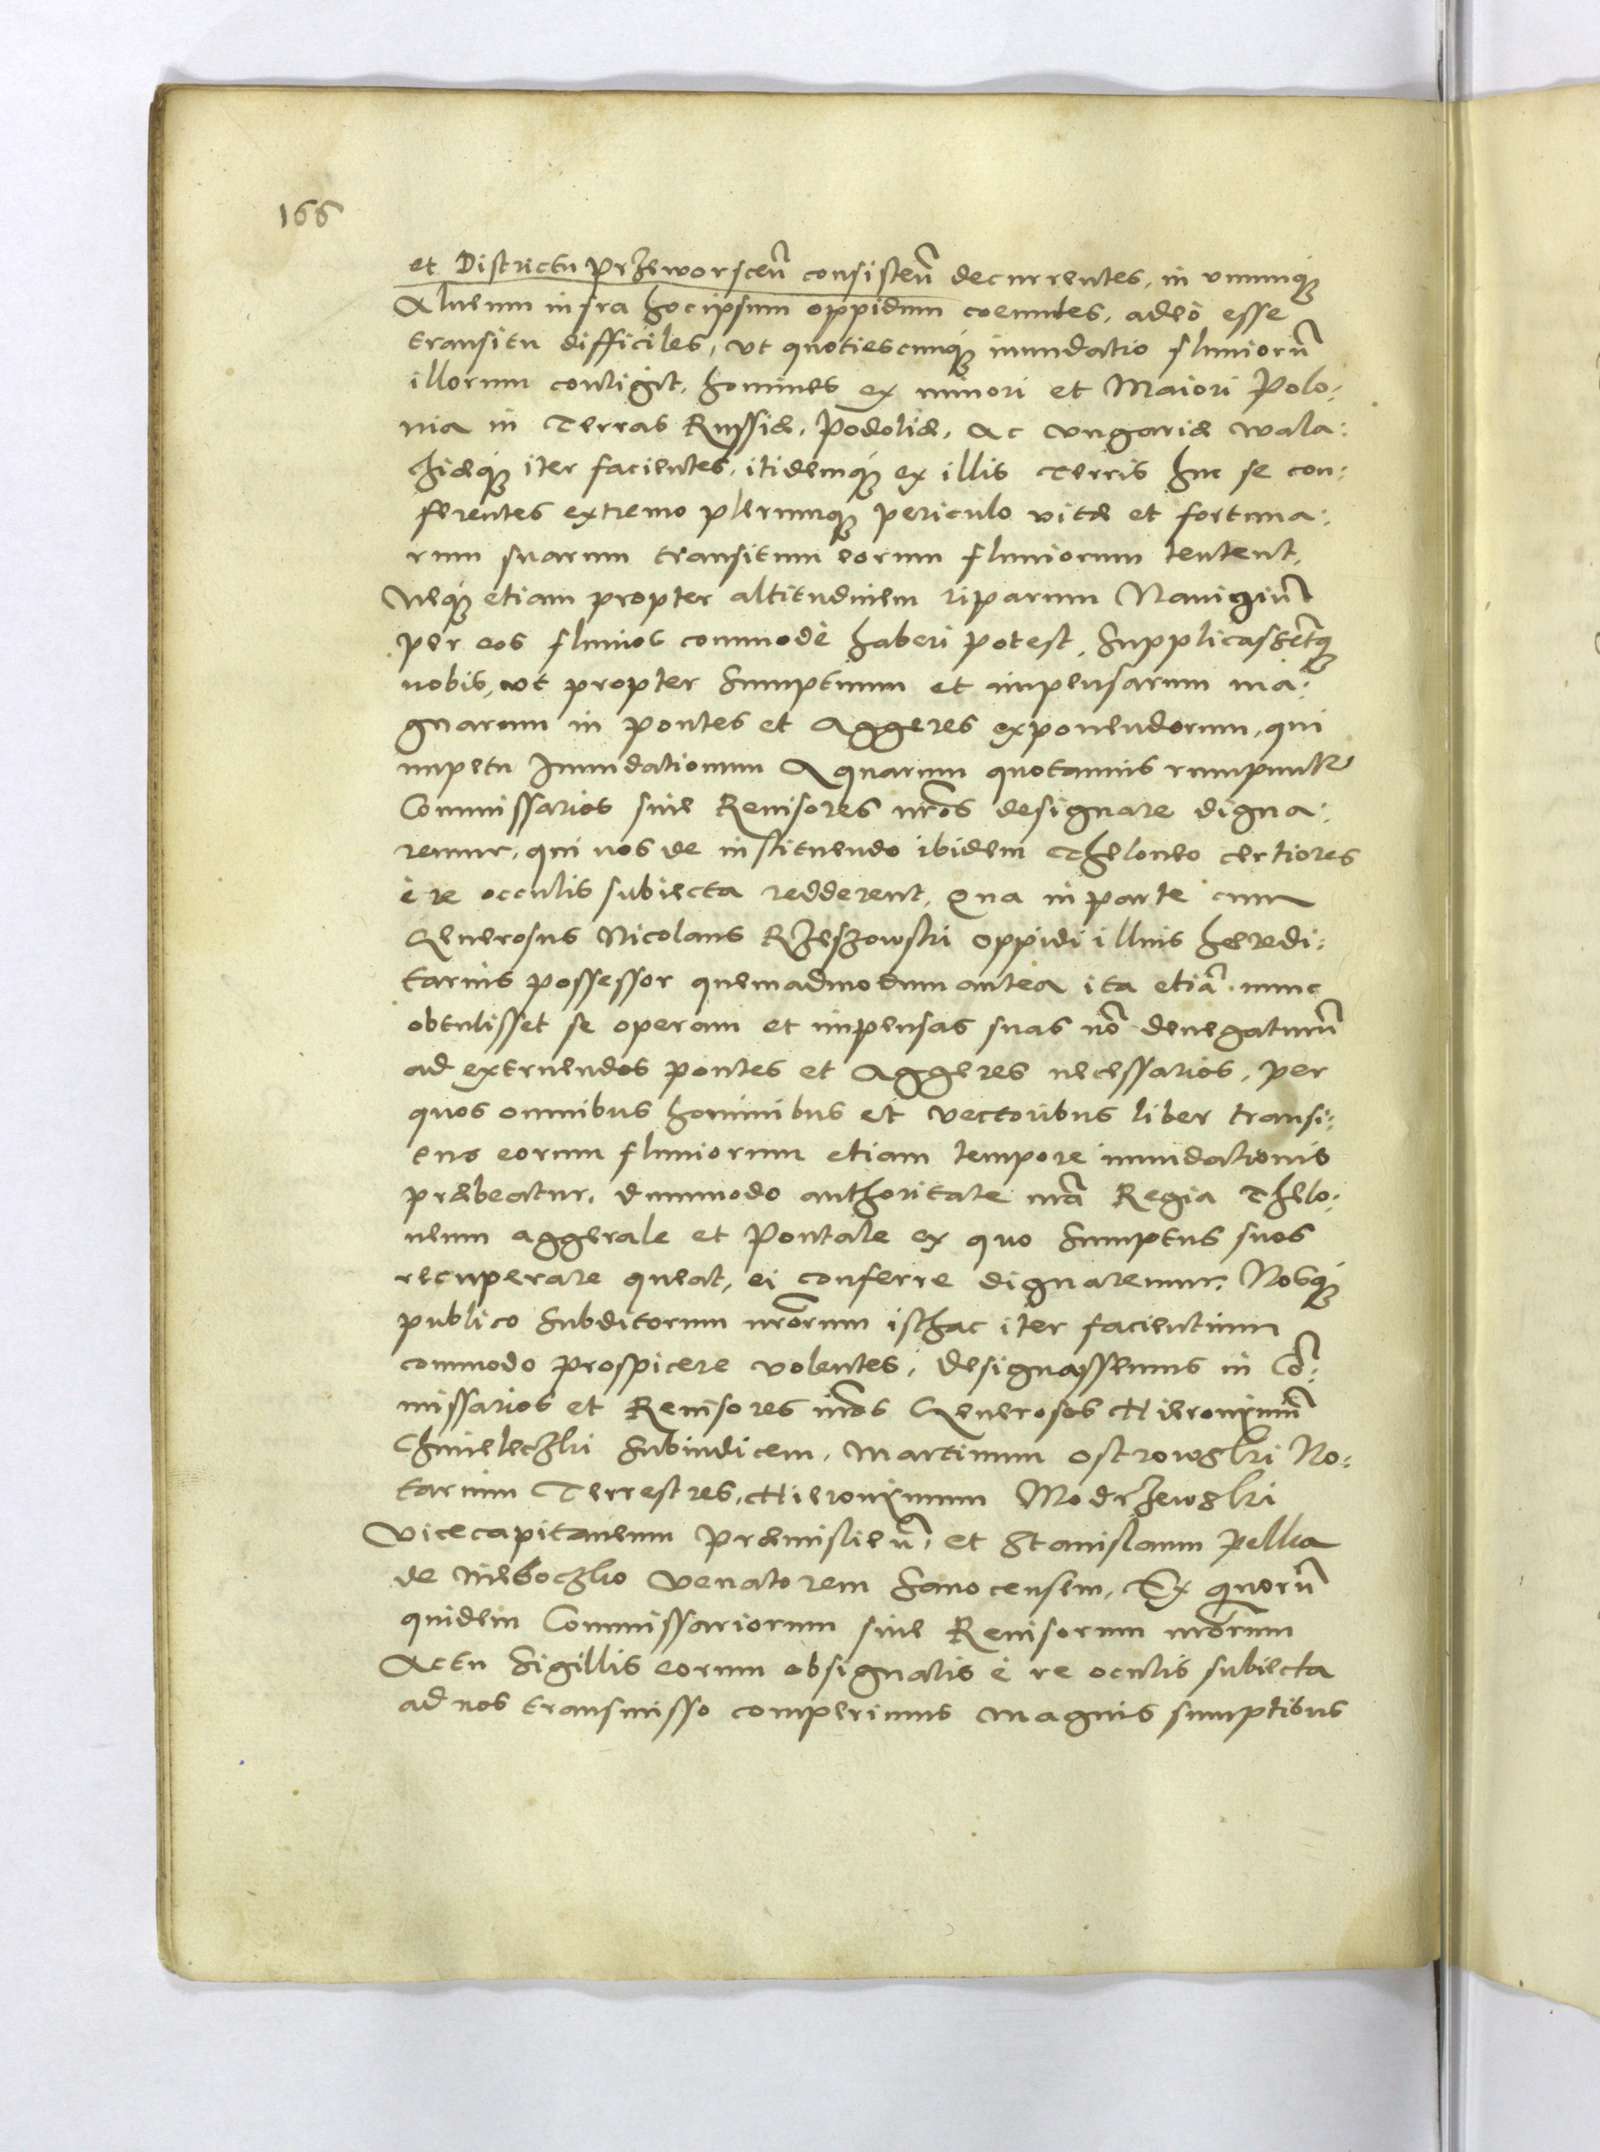 166
et Districtu Przeworsceñ consisteñ decurrentes, in unumq;
Alueum infra hoc ipsum oppidum coeuntes, adeò esse
transitu difficiles, ut quotiescunq; inundatio fluuiorũ
illorum contigit, homines ex minori et Maiori Polo:
nia in Terras Russiæ, Podoliæ, ac Vngariæ wala:
chiæq; iter facientes, itidemq; ex illis Terris huc se con:
ferentes extremo plerumq; periculo vitæ et fortuna:
rum suarum transitum eorum fluuiorum tentent,
Neq; etiam propter altitudinem riparum Nauigiũ
per eos fluuios commodè haberi potest, Supplicassẽtq;
nobis, ut propter Sumptuum et impensarum ma:
gnarum in pontes et Aggeres exponendorum, qui
impetu Inundationum Aquarum quotannis rumpuntur
Commissarios siue Reuisores nr̃os designare digna:
remur, qui nos de instituendo ibidem Theloneo certiores
è re occulis subiecta redderent, Qua in parte cum
Generosus Nicolaus Rzeszowski oppidi illius heredi:
tarius possessor quemadmodum antea ita etiã nunc
obtulisset se operam et impensas suas nõ denegaturũ
ad extruendos pontes et Aggeres necessarios, per
quos omnibus hominibus et vectoribus liber transi:
tus eorum fluuiorum etiam tempore inundationis
præbeatur, dummodo authoritate nrã Regia Thelo:
neum aggerale et Pontale ex quo Sumptus suos
recuperare queat, ei conferre dignaremur, Nosq;
publico Subditorum nr̃orum isthac iter facientium
commodo prospicere volentes, designassemus in Cõ:
missarios et Reuisores nr̃os Generosos Hieronimũ
Chmieleczki Subiudicem, Martinum Ostrowski No:
tarium Terrestres, Hieronimum Modrzewski
Vicecapitaneum Præmislieñ, et Stanislaum Pelka
de Nieboczko Venatorem Sanocensem, Ex quorũ
quidem Commissariorum siue Reuisorum nr̃orum
Actu Sigillis eorum obsignatis è re oculis subiecta
ad nos transmisso comperimus magnis sumptibus